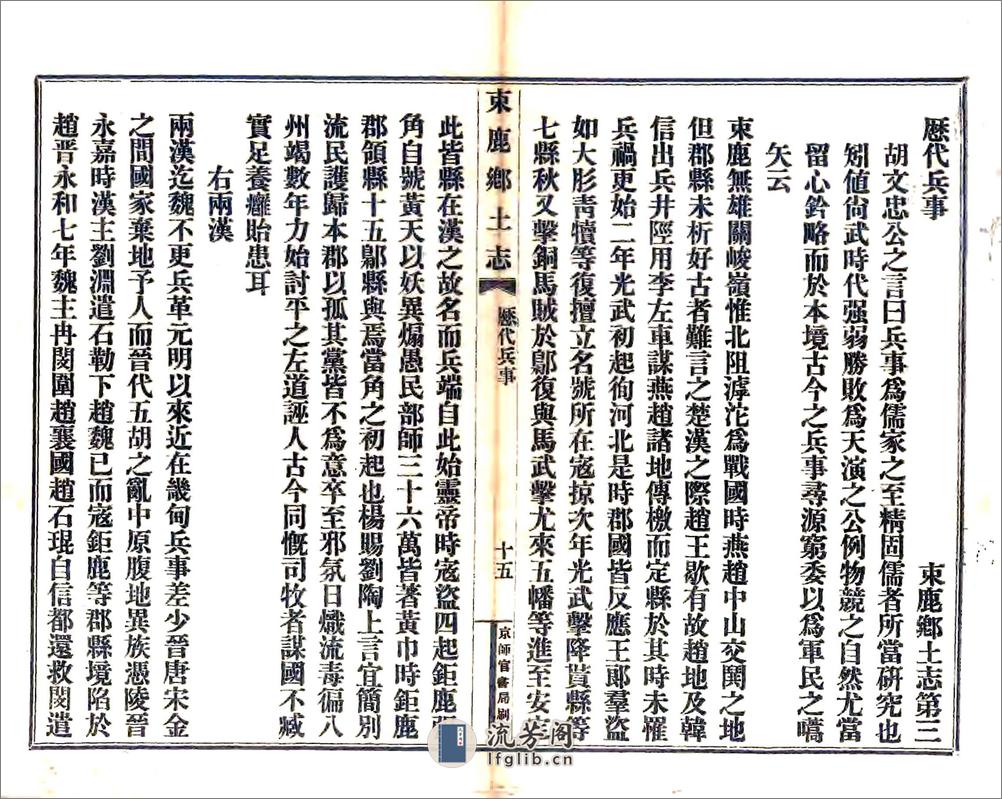 歷代兵事　束鹿鄉土志第三
胡文忠公之言曰兵事爲儒家之至精固儒者所當硏究也
矧値尙武時代强弱勝敗爲天演之公例物競之自然尤當
留心鈐略而於本境古今之兵事尋源窮委以爲軍民之嚆
矢云
束鹿無雄關峻嶺惟北阻滹沱爲戰國時燕趙中山交鬨之地
但郡縣未析好古者難言之楚漢之際趙王歇有故趙地及韓
信出兵井陘用李左車謀燕趙諸地傳檄而定縣於其時未罹
兵禍更始二年光武初起徇河北是時郡國皆反應王郞羣盜
如大肜靑犢等復擅立名號所在寇掠次年光武擊降貰縣等
七縣秋又擊銅馬賊於鄡復與馬武擊尤來五幡等進至安
束鹿鄉土志
歷代兵事
十五
京師官書局刷
此皆縣在漢之故名而兵端自此始靈帝時寇盜四起鉅鹿張
角自號黃天以妖異煽愚民部師三十六萬皆著黃巾時鉅鹿
郡領縣十五鄡縣與焉當角之初起也楊賜劉陶上言宜簡別
流民護歸本郡以孤其黨皆不爲意卒至邪氛日熾流毒徧八
州竭數年力始討平之左道誣人古今同慨司牧者謀國不臧
實足養癰貽患耳
右兩漢
兩漢迄魏不更兵革元明以來近在畿甸兵事差少晉唐宋金
之間國家棄地予人而晉代五胡之亂中原腹地異族憑陵晉
永嘉時漢主劉淵遣石勒下趙魏已而寇鉅鹿等郡縣境陷於
趙晋永和七年魏主冉閔圍趙襄國趙石琨自信都還救閔遣
流芳阁
lfglib.cn